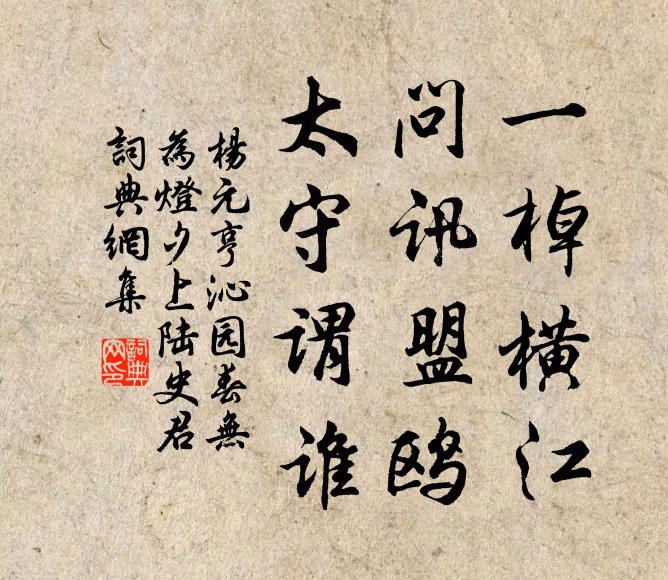 一棹横江
问讯盟鸥
太守谓谁
楊元亨沁园春無
為燈夕上陆史君
詞典網集
詞典
网印